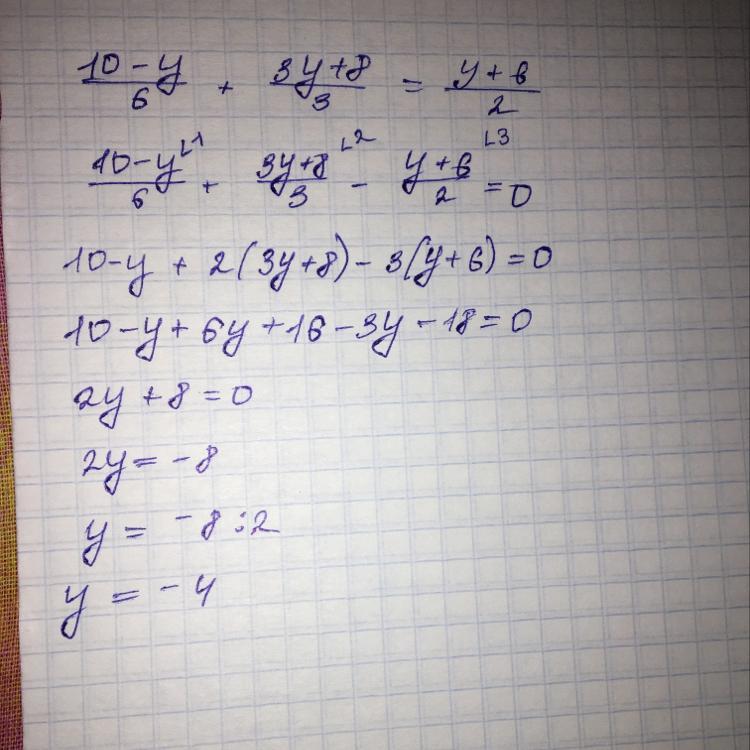 (10-y)/6 + (3y+8)/3 = (y+6)/2
(10-y)/6 ∟1 + (3y+8)/3 ∟2 - (y+6)/2 ∟3 = 0
10-y + 2(3y+8) - 3(y+6) = 0
10-y+6y+16-3y-18=0
2y+8=0
2y=-8
y = -8:2
y = -4